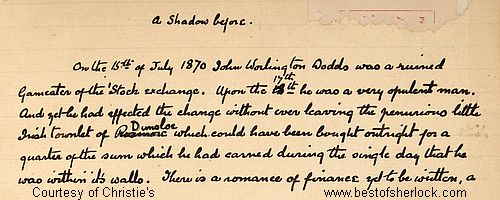 A Shadow before.
On the 15th of July 1870 John Worlington Dodds was a ruined
Gamester of the Stock exchange. Upon the 17th he was a very opulent man.
And yet he had effected the change without ever leaving the penurious little
Irish townlet of Dunsloe which could have been bought outright for a
quarter of the sum which he had earned during the single day that he
was within its walls. There is a romance of finance yet to be written, a
Courtesy of Christie's
www.bestofsherlock.com